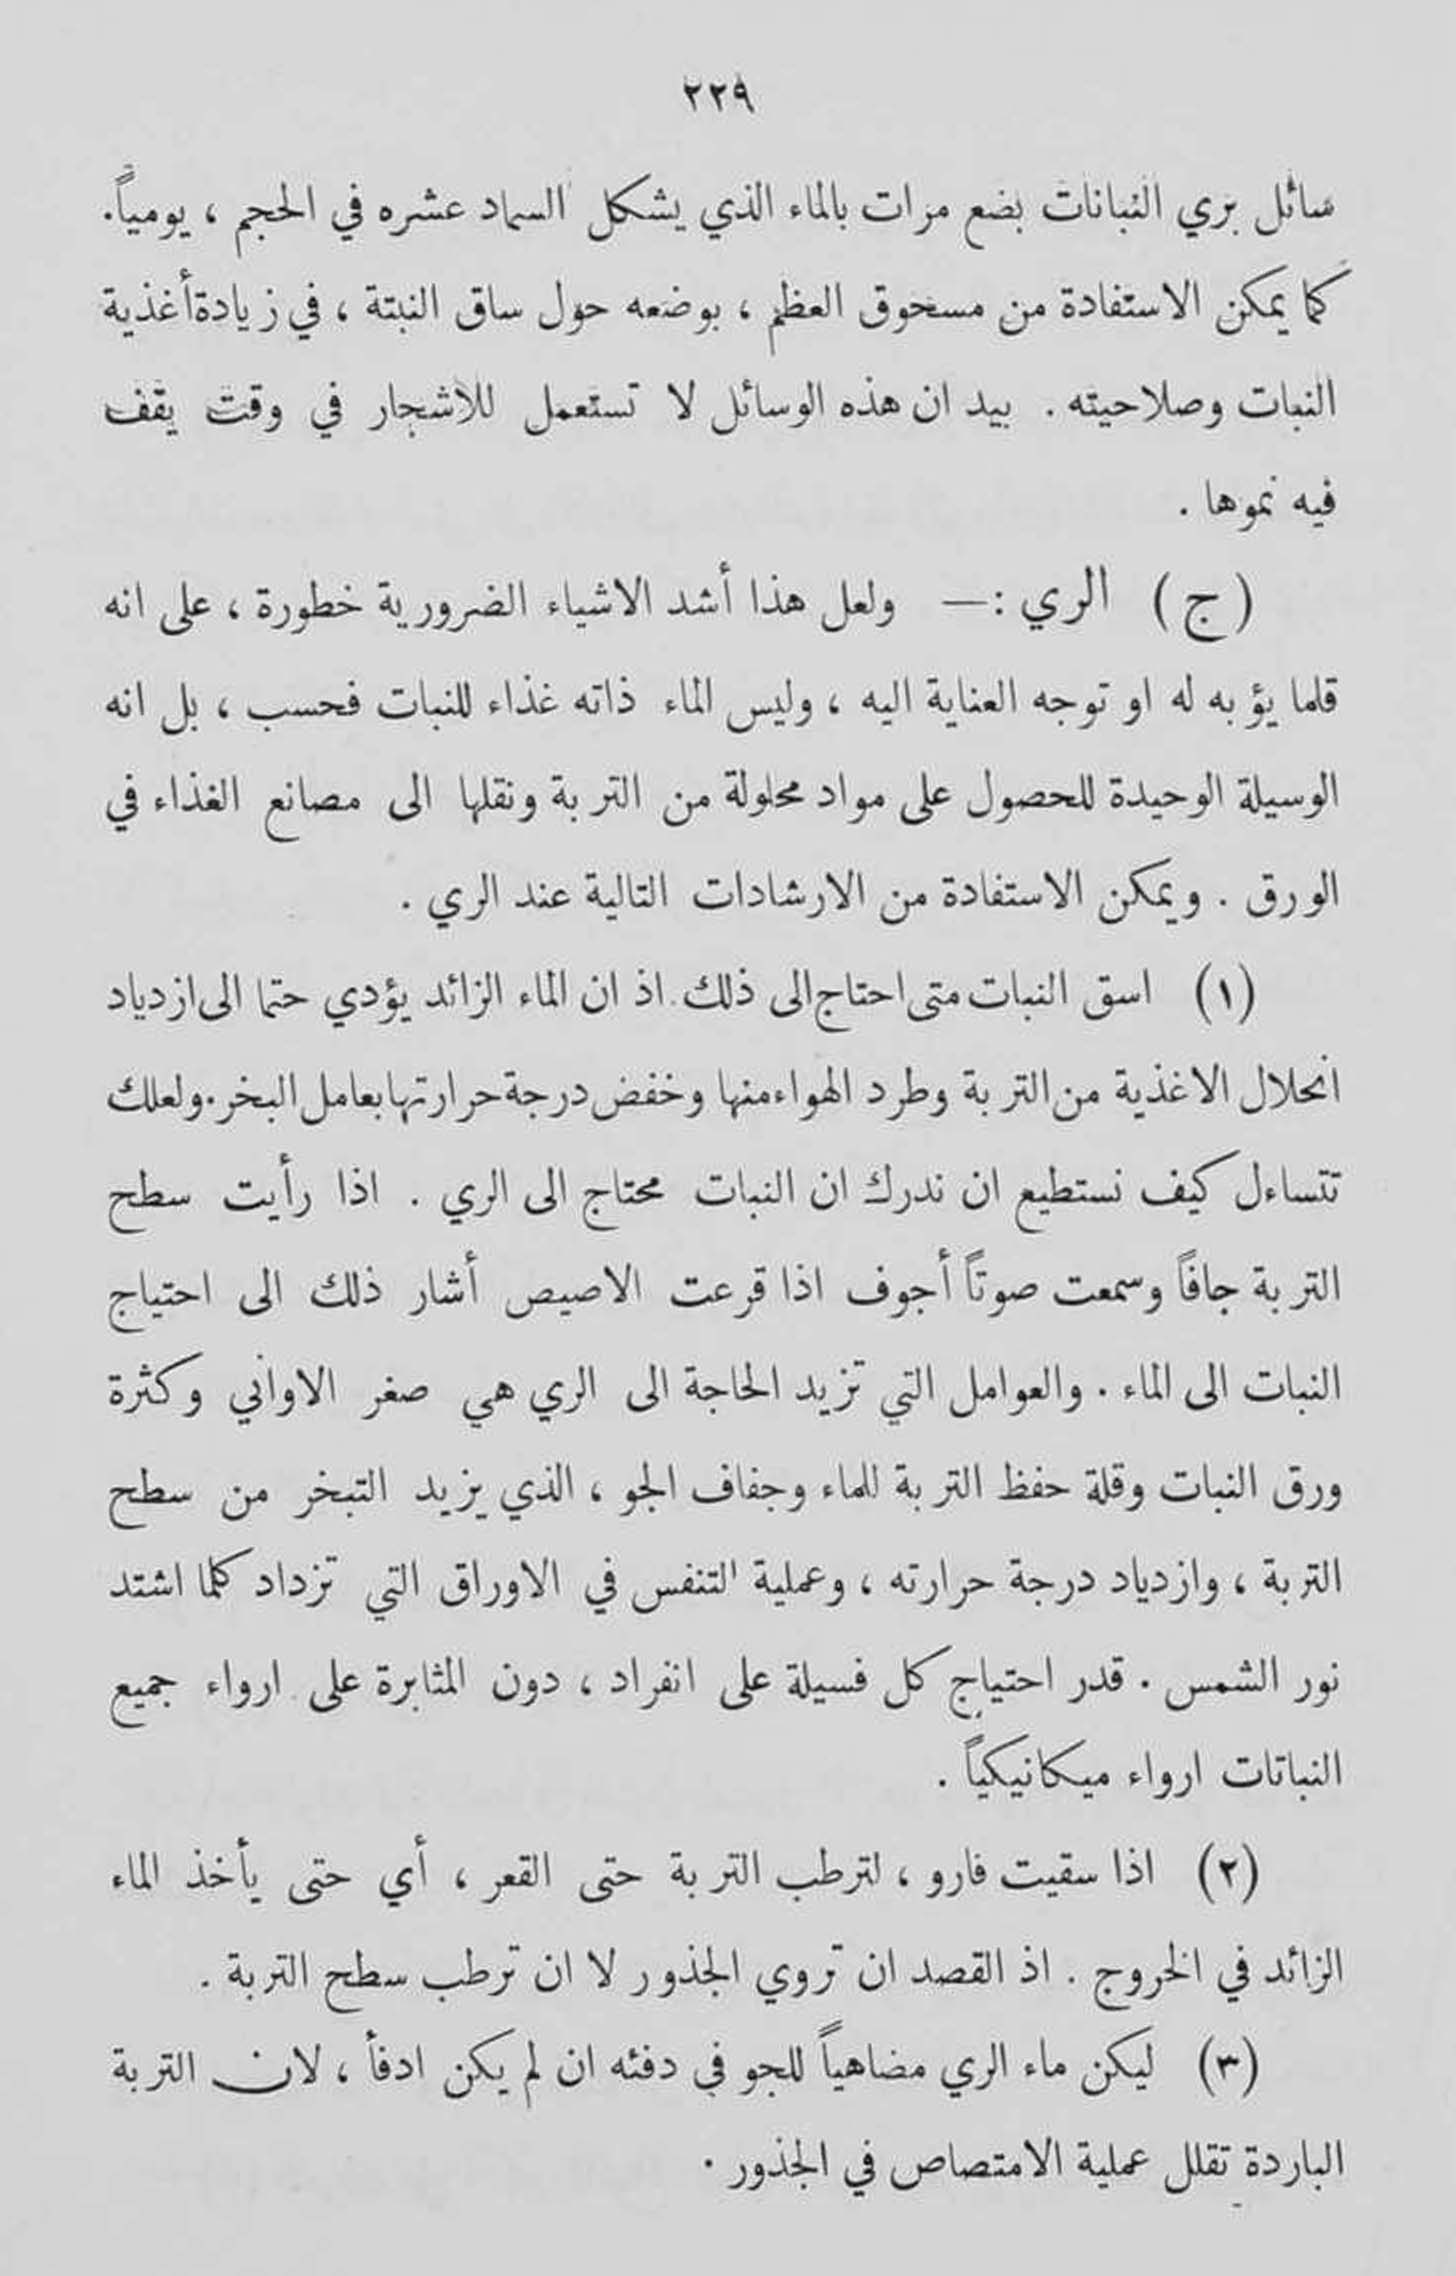 ٢٢٩
سائل بري النباتات بضع مرات بالماء الذي يشكل السماد عشره في الحجم ، يومياً.
كما يمكن الاستفادة من مسحوق العظم ، بوضعه حول ساق النبتة ، في زيادة أغذية
النبات وصلاحيته . بيد ان هذه الوسائل لا تستعمل للاشجار في وقت يقف
فيه نموها .
(ج) الري :— ولعل هذا أشد الاشياء الضرورية خطورة ، على انه
قلما يؤبه له او توجه العناية اليه ، وليس الماء ذاته غذاء للنبات فحسب ، بل انه
الوسيلة الوحيدة للحصول على مواد محلولة من التربة ونقلها الى مصانع الغذاء في
الورق . ويمكن الاستفادة من الارشادات التالية عند الري .
(١) اسق النبات متى احتاج الى ذلك . اذ ان الماء الزائد يؤدي حتما الى ازدياد
انحلال الاغذية من التربة وطرد الهواء منها وخفض درجة حرارتها بعامل البخر . ولعلك
تتساءل كيف نستطيع ان ندرك ان النبات محتاج الى الري . اذا رأيت سطح
التربة جافاً وسمعت صوتاً أجوف اذا قرعت الاصيص أشار ذلك الى احتياج
النبات الى الماء . والعوامل التي تزيد الحاجة الى الري هي صغر الاواني وكثرة
ورق النبات وقلة حفظ التربة للماء وجفاف الجو ، الذي يزيد التبخر من سطح
التربة ، وازدياد درجة حرارته ، وعملية التنفس في الاوراق التي تزداد كلما اشتد
نور الشمس . قدر احتياج كل فسيلة على انفراد ، دون المثابرة على ارواء جميع
النباتات ارواء ميكانيكياً .
(٢) اذا سقيت فارو ، لترطب التربة حتى القعر ، أي حتى يأخذ الماء
الزائد في الخروج . اذ القصد ان تروي الجذور لا ان ترطب سطح التربة .
(٣) ليكن ماء الري مضاهياً للجو في دفئه ان لم يكن ادفأ ، لان التربة
الباردة تقلل عملية الامتصاص في الجذور .